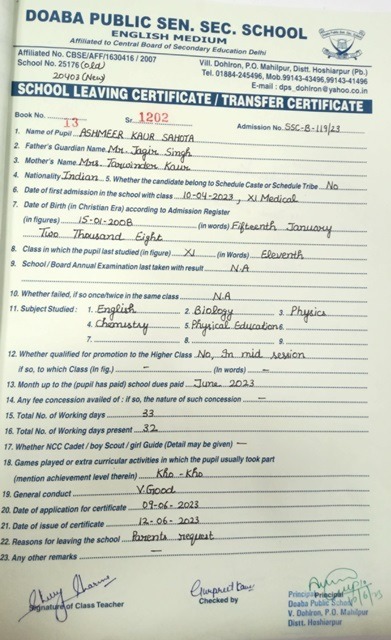 DOABA PUBLIC SEN. SEC. SCHOOL
ENGLISH MEDIUM
Affiliated to Central Board of Secondary Education Delhi
Affiliated No. CBSE/AFF/1630416 / 2007
School No. 25176 (old)
20403 (New)
Vill. Dohiron, P.O. Mahilpur, Distt. Hoshiarpur (Pb.)
Tel. 01884-245496, Mob.99143-43496,99143-41496
E-mail : dps_dohiron@yahoo.co.in
SCHOOL LEAVING CERTIFICATE / TRANSFER CERTIFICATE
Book No. 13 Sr. 1202 Admission No. SSC-B-119/23
1. Name of Pupil ASHMEER KAUR SAHOTA
2. Father's Guardian Name Mr. Jagir Singh
3. Mother's Name Mrs. Tarwinder Kaur
4. Nationality Indian 5. Whether the candidate belong to Schedule Caste or Schedule Tribe No
6. Date of first admission in the school with class 10-04-2023, XI Medical
7. Date of Birth (in Christian Era) according to Admission Register
(in figures) 15-01-2008 (in words) Fifteenth January
Two Thousand Eight
8. Class in which the pupil last studied (in figure) XI (in Words) Eleventh
9. School / Board Annual Examination last taken with result N.A
10. Whether failed, if so once/twice in the same class N.A
11. Subject Studied : 1. English 2. Biology 3. Physics
4. Chemistry 5. Physical Education 6.
7. 8. 9.
12. Whether qualified for promotion to the Higher Class No, In mid session
if so, to which Class (In fig.) – (In words) –
13. Month up to the (pupil has paid) school dues paid June 2023
14. Any fee concession availed of : if so, the nature of such concession –
15. Total No. of Working days 33
16. Total No. of Working days present 32
17. Whether NCC Cadet / boy Scout / girl Guide (Detail may be given) –
18. Games played or extra curricular activities in which the pupil usually took part
(mention achievement level therein) Kho-Kho
19. General conduct V.Good
20. Date of application for certificate 09-06-2023
21. Date of issue of certificate 12-06-2023
22. Reasons for leaving the school Parents request
23. Any other remarks –
Signature of Class Teacher
Gurpreet Kaur
Checked by
Principal
Principal
Doaba Public School
V. Dohiron, P.O. Mahilpur
Distt. Hoshiarpur